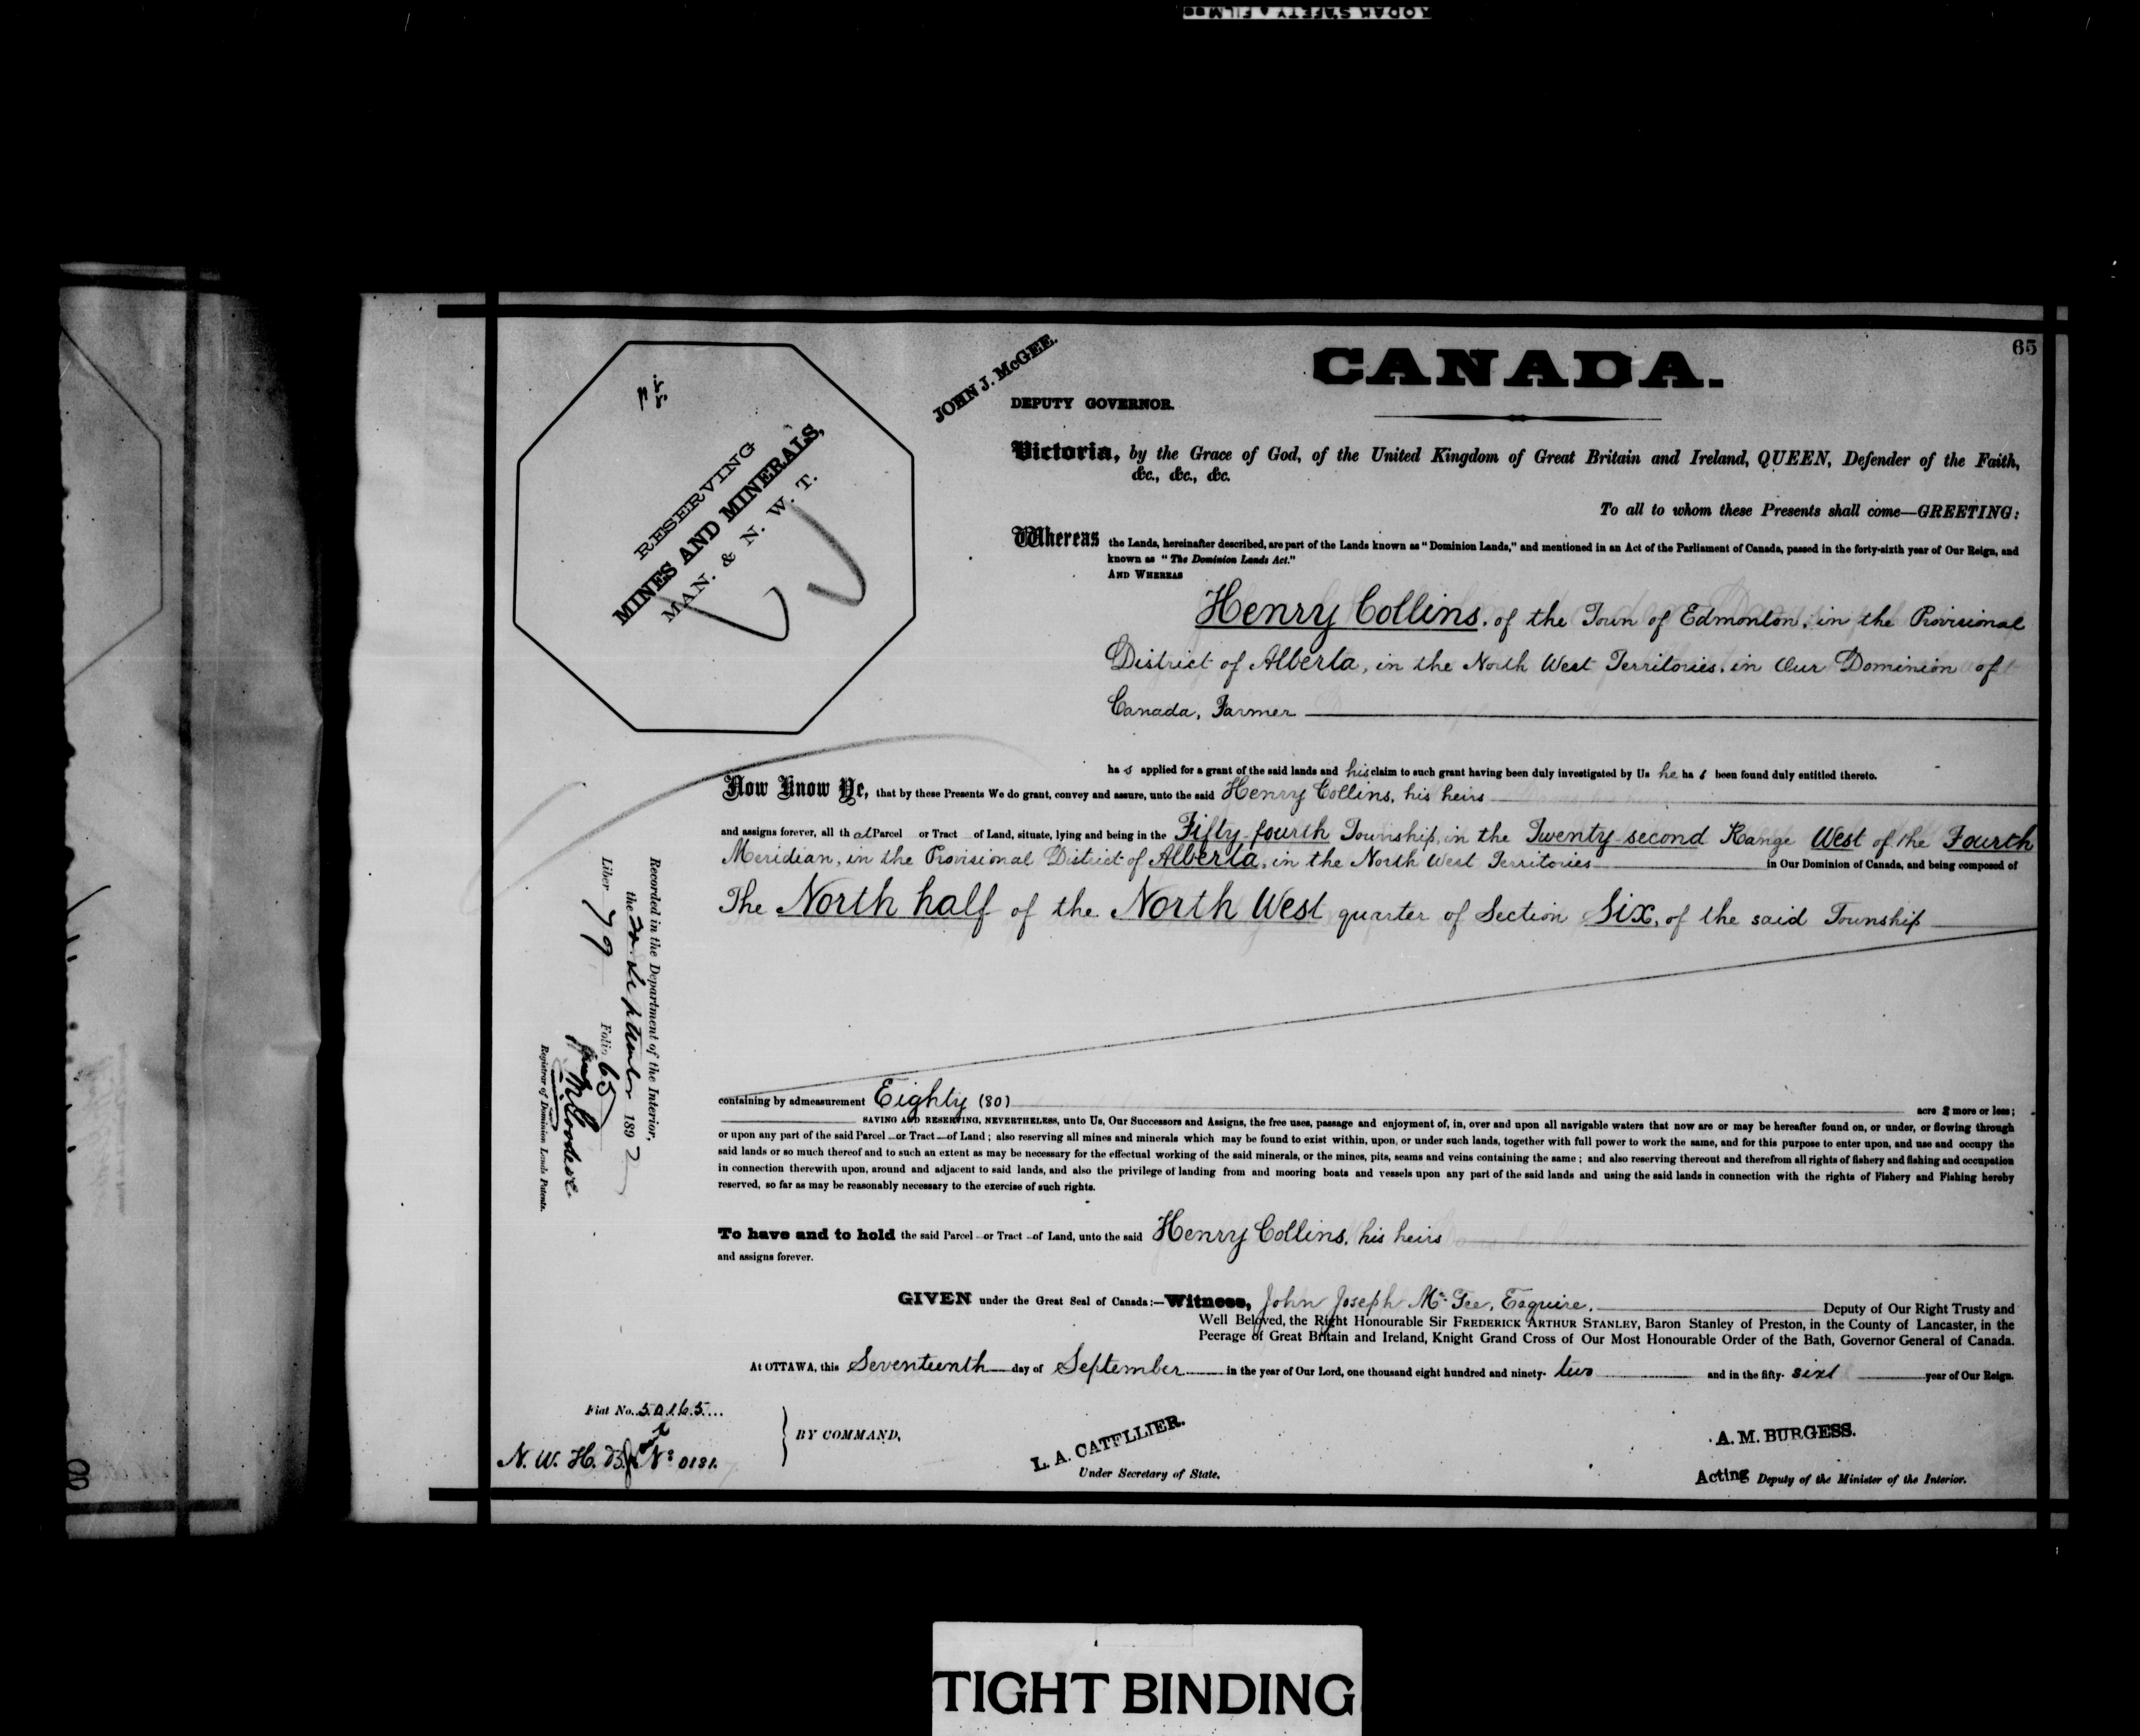 KODAK SAFETY FILM
65
CANADA.
JOHN J. McGEE.
DEPUTY GOVERNOR.
RESERVING
MINES AND MINERALS,
MAN. & N. W. T.
Victoria, by the Grace of God, of the United Kingdom of Great Britain and Ireland, QUEEN, Defender of the Faith,
&c., &c., &c.
To all to whom these Presents shall come—GREETING:
Whereas the Lands, hereinafter described, are part of the Lands known as "Dominion Lands," and mentioned in an Act of the Parliament of Canada, passed in the forty-sixth year of Our Reign, and
known as "The Dominion Lands Act."
AND WHEREAS
Henry Collins, of the Town of Edmonton, in the Provisional
District of Alberta, in the North West Territories, in Our Dominion of
Canada, Farmer
ha s applied for a grant of the said lands and his claim to such grant having been duly investigated by Us he ha s been found duly entitled thereto.
Now Know Ye, that by these Presents We do grant, convey and assure, unto the said Henry Collins, his heirs
and assigns forever, all th at Parcel or Tract of Land, situate, lying and being in the Fifty-fourth Township, in the Twenty-second Range West of the Fourth
Meridian, in the Provisional District of Alberta, in the North West Territories in Our Dominion of Canada, and being composed of
The North half of the North West quarter of Section Six, of the said Township
containing by admeasurement Eighty (80) acre s more or less;
SAVING AND RESERVING, NEVERTHELESS, unto Us, Our Successors and Assigns, the free uses, passage and enjoyment of, in, over and upon all navigable waters that now are or may be hereafter found on, or under, or flowing through
or upon any part of the said Parcel or Tract of Land; also reserving all mines and minerals which may be found to exist within, upon, or under such lands, together with full power to work the same, and for this purpose to enter upon, and use and occupy the
said lands or so much thereof and to such an extent as may be necessary for the effectual working of the said minerals, or the mines, pits, seams and veins containing the same; and also reserving thereout and therefrom all rights of fishery and fishing and occupation
in connection therewith upon, around and adjacent to said lands, and also the privilege of landing from and mooring boats and vessels upon any part of the said lands and using the said lands in connection with the rights of Fishery and Fishing hereby
reserved, so far as may be reasonably necessary to the exercise of such rights.
To have and to hold the said Parcel or Tract of Land, unto the said Henry Collins, his heirs
and assigns forever.
GIVEN under the Great Seal of Canada:—Witness, John Joseph McGee, Esquire, Deputy of Our Right Trusty and
Well Beloved, the Right Honourable Sir FREDERICK ARTHUR STANLEY, Baron Stanley of Preston, in the County of Lancaster, in the
Peerage of Great Britain and Ireland, Knight Grand Cross of Our Most Honourable Order of the Bath, Governor General of Canada.
At OTTAWA, this Seventeenth day of September in the year of Our Lord, one thousand eight hundred and ninety- two and in the fifty- sixt year of Our Reign.
Recorded in the Department of the Interior,
the September 1892
Liber 79 Folio 65
Registrar of Dominion Lands Patents.
Fiat No. 50165
N. W. H. B. Grant No 0181.
BY COMMAND,
L. A. CATELLIER.
Under Secretary of State.
A. M. BURGESS.
Acting Deputy of the Minister of the Interior.
TIGHT BINDING